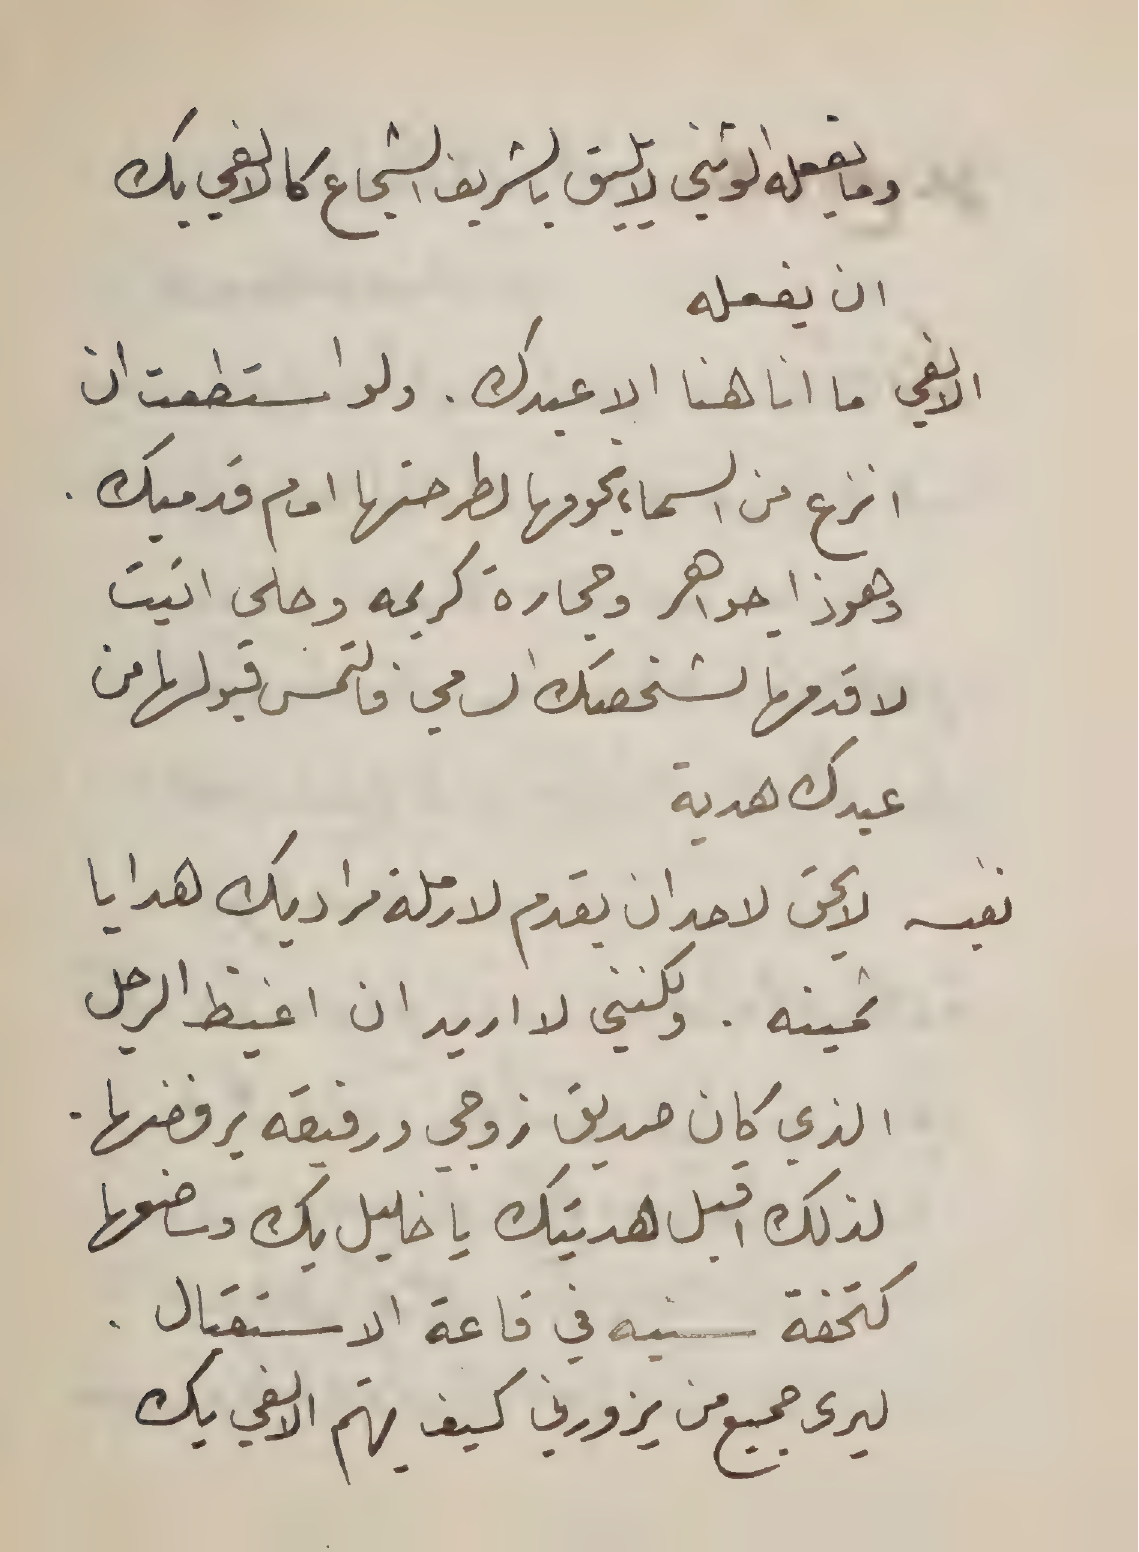 وما يفعله الوثني لا يليق بالشريف الشجاع كالالفي بك
ان يفعله
الالفي ما انا هنا الا عبدك . ولو استطعت ان
انزع من السماء نجومها لطرحتها امام قدميك .
وهوذا جواهر وحجارة كريمه وحلى اتيت
لاقدمها لشخصك السامي فالتمس قبولها من
عبدك هدية
نفيسه لا يحق لاحد ان يقدم لارملة مراد بك هدايا
ثمينه . ولكنني لا اريد ان اغيظ الرجل
الذي كان صديق زوجي ورفيقه برفضها .
لذلك اقبل هديتك يا خليل بك وساضعها
كتحفة سنيه في قاعة الاستقبال .
ليرى جميع من يزورني كيف يهتم الالفي بك